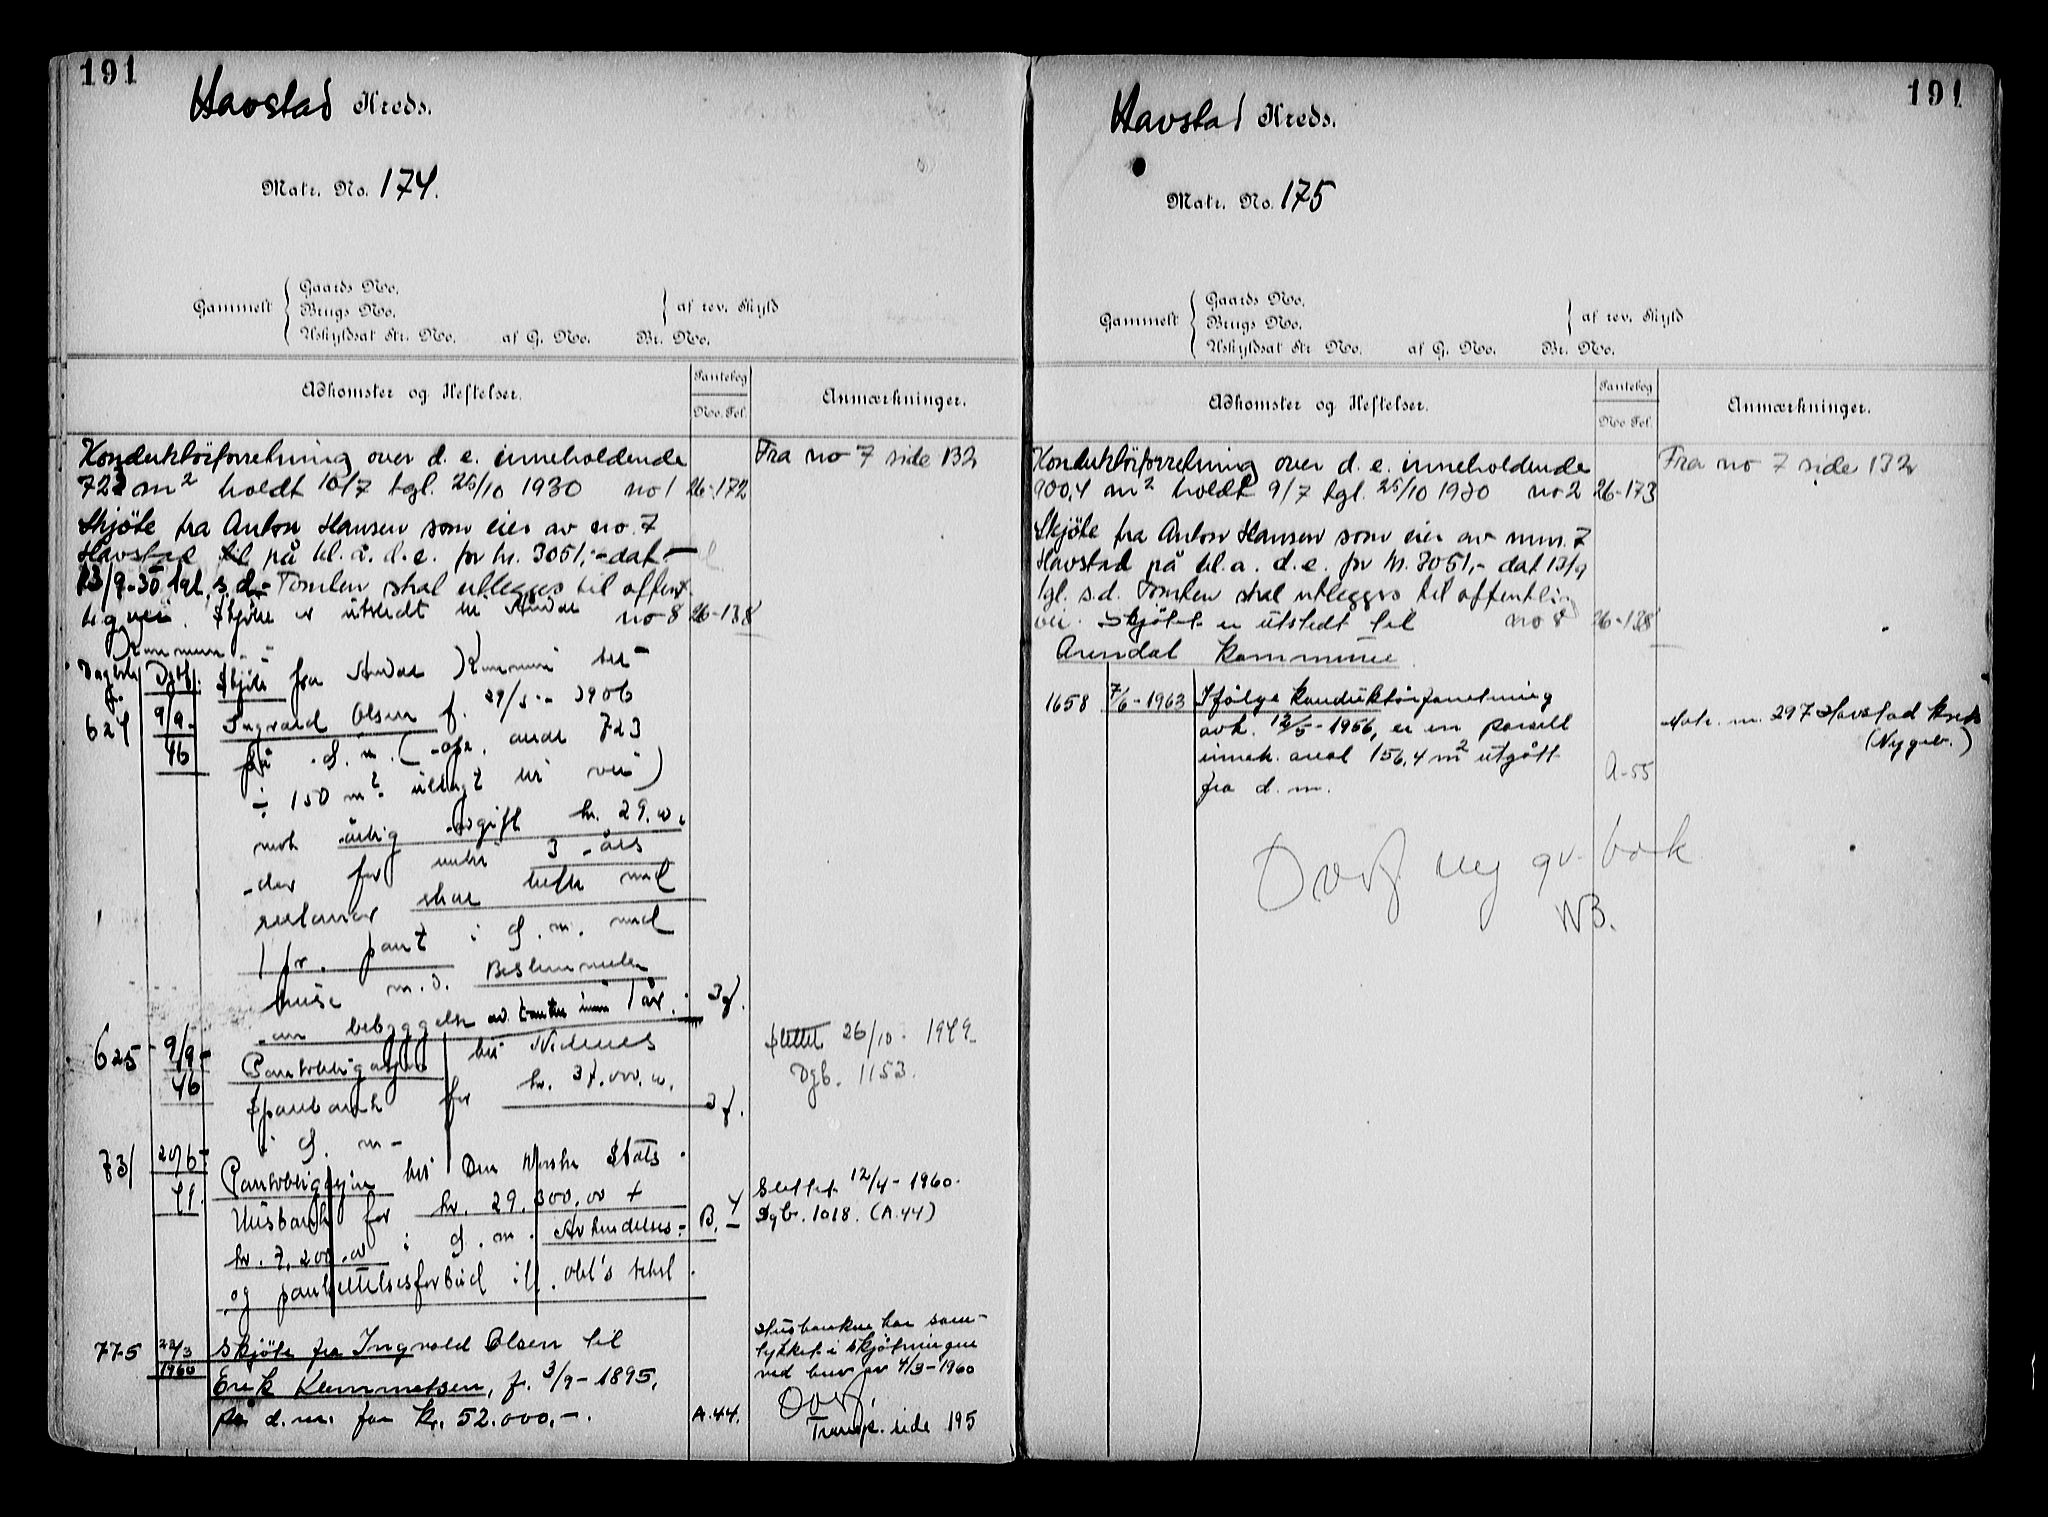 191
Havstad Kreds.
Matr. No. 174.
Gammelt
Gaards No.
Brugs No.
Uskyldsat Str. No. af G. No. Br. No.
af rev. Skyld
Adkomster og Heftelser.
Pantebog
No. Fol.
Anmærkninger.
Konduktörforretning over d. e. inneholdende
723 m² holdt 10/7 tgl. 25/10 1930 no 1 26-172
Fra no 7 side 132
Skjöte fra Anton Hansen som eier av no. 7
Havstad til på bl. a. d. e. for kr. 3051,- dat
13/9-30 tgl. s.d. Tomten skal utlegges til offent
lig vei. Skjöte er utstedt til Arendal no 8 26-138
Kommune
Dagbok Dgbf. Skjöte fra Arendal Kommune til
624 9/9- 46 Ingvald Olsen f. 29/5- 1906
på d. m. (opr. areal 723
÷ 150 m² utlagt til vei)
mot årlig avgift kr. 29.00,
der for inntil 3 års
restanse skal hefte med
1 pr. pant i d. m. med
huse m. v. Bestemmelse
om bebyggelse av tomten innen 1 år. 3 f.
625 9/9- 46 Pantobligasjon til Nidenes
Sparebank for kr. 37.000.00.
i d. m- 3 f.
Slettet 26/10. 1949
Dgb. 1153.
731 20/6- 49. Pantobligasjon til Den Norske Stats
Husbank for kr. 29.300.00 +
kr. 7.200.00 i d. m. Avhendelses- B. 4
og pantsettelsesforbud ifl. obl's tekst.
Slettet 12/4- 1960.
Dgbr. 1018. (A.44)
775 22/3 1960 Skjöte fra Ingvald Olsen til
Erik Klemmetsen, f. 3/9-1895,
på d. m. for kr. 52.000,-. A.44.
Husbanken har sam-
tykket i skjötningen
ved brev av 4/3-1960
Overf.
Transp. side 195
191
Havstad Kreds.
Matr. No. 175
Gammelt
Gaards No.
Brugs No.
Uskyldsat Str. No. af G. No. Br. No.
af rev. Skyld
Adkomster og Heftelser.
Pantebog
No. Fol.
Anmærkninger.
Konduktörforretning over d. e. inneholdende
900,4 m² holdt 9/7 tgl. 25/10 1930 no 2 26-173
Fra no 7 side 132
Skjöte fra Anton Hansen som eier av mnr. 7
Havstad på bl. a. d. e. for kr. 3051,- dat 13/9
tgl. s.d. Tomten skal utlegges til offentlig
vei. Skjötet er utstedt til no 8 26-138
Arendal kommune.
1658 7/6-1963 Ifölge konduktörforretning
avh. 12/5-1956, er en parsell
inneh. areal 156,4 m² utgått
fra d. m. A-55
Matr. nr. 297 Havstad kreds
(Nygev.)
Overf ny gr. bok
NB.